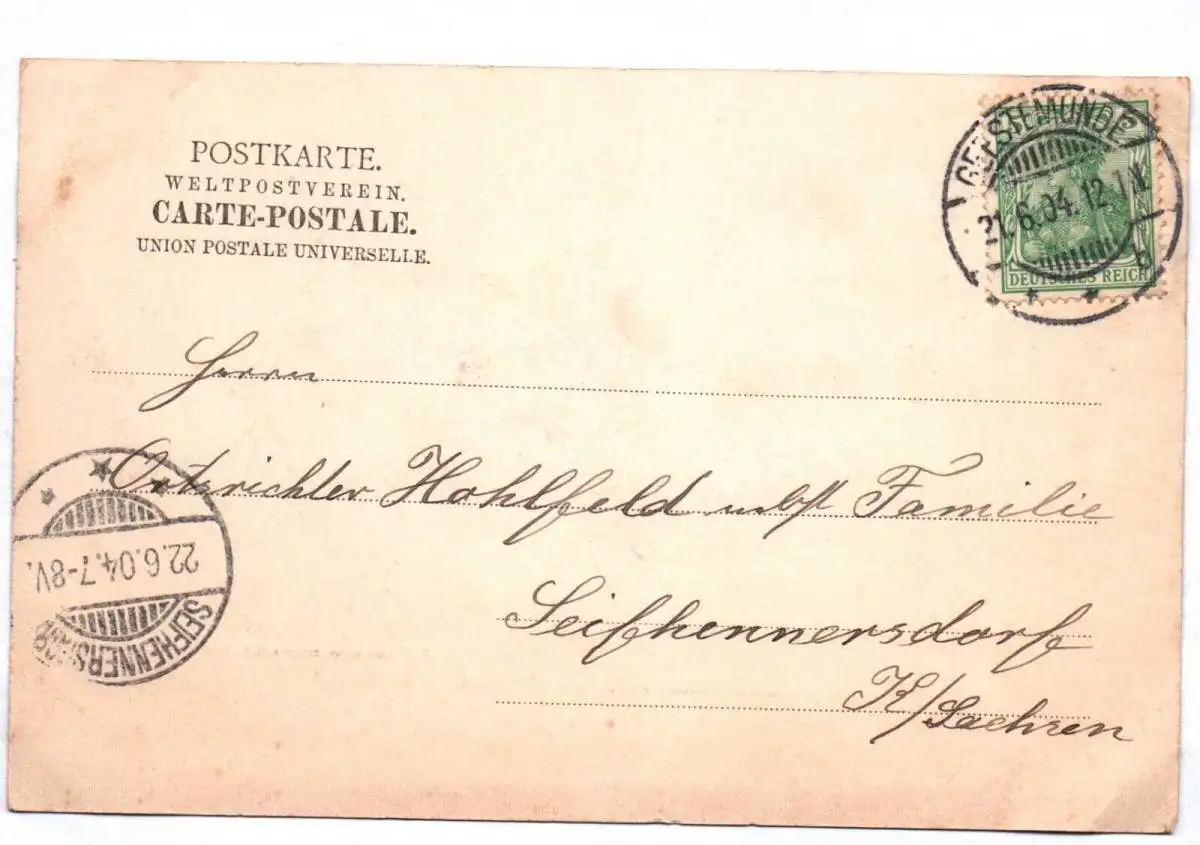 POSTKARTE.
WELTPOSTVEREIN.
CARTE-POSTALE.
UNION POSTALE UNIVERSELLE.
GEESTEMÜNDE
21.6.04.12-1N.
b
DEUTSCHES REICH
Herrn
Ortsrichter Hohlfeld nebst Familie
Seifhennersdorf
K/Sachsen
22.6.04.7-8V.
SEIFHENNERSDORF